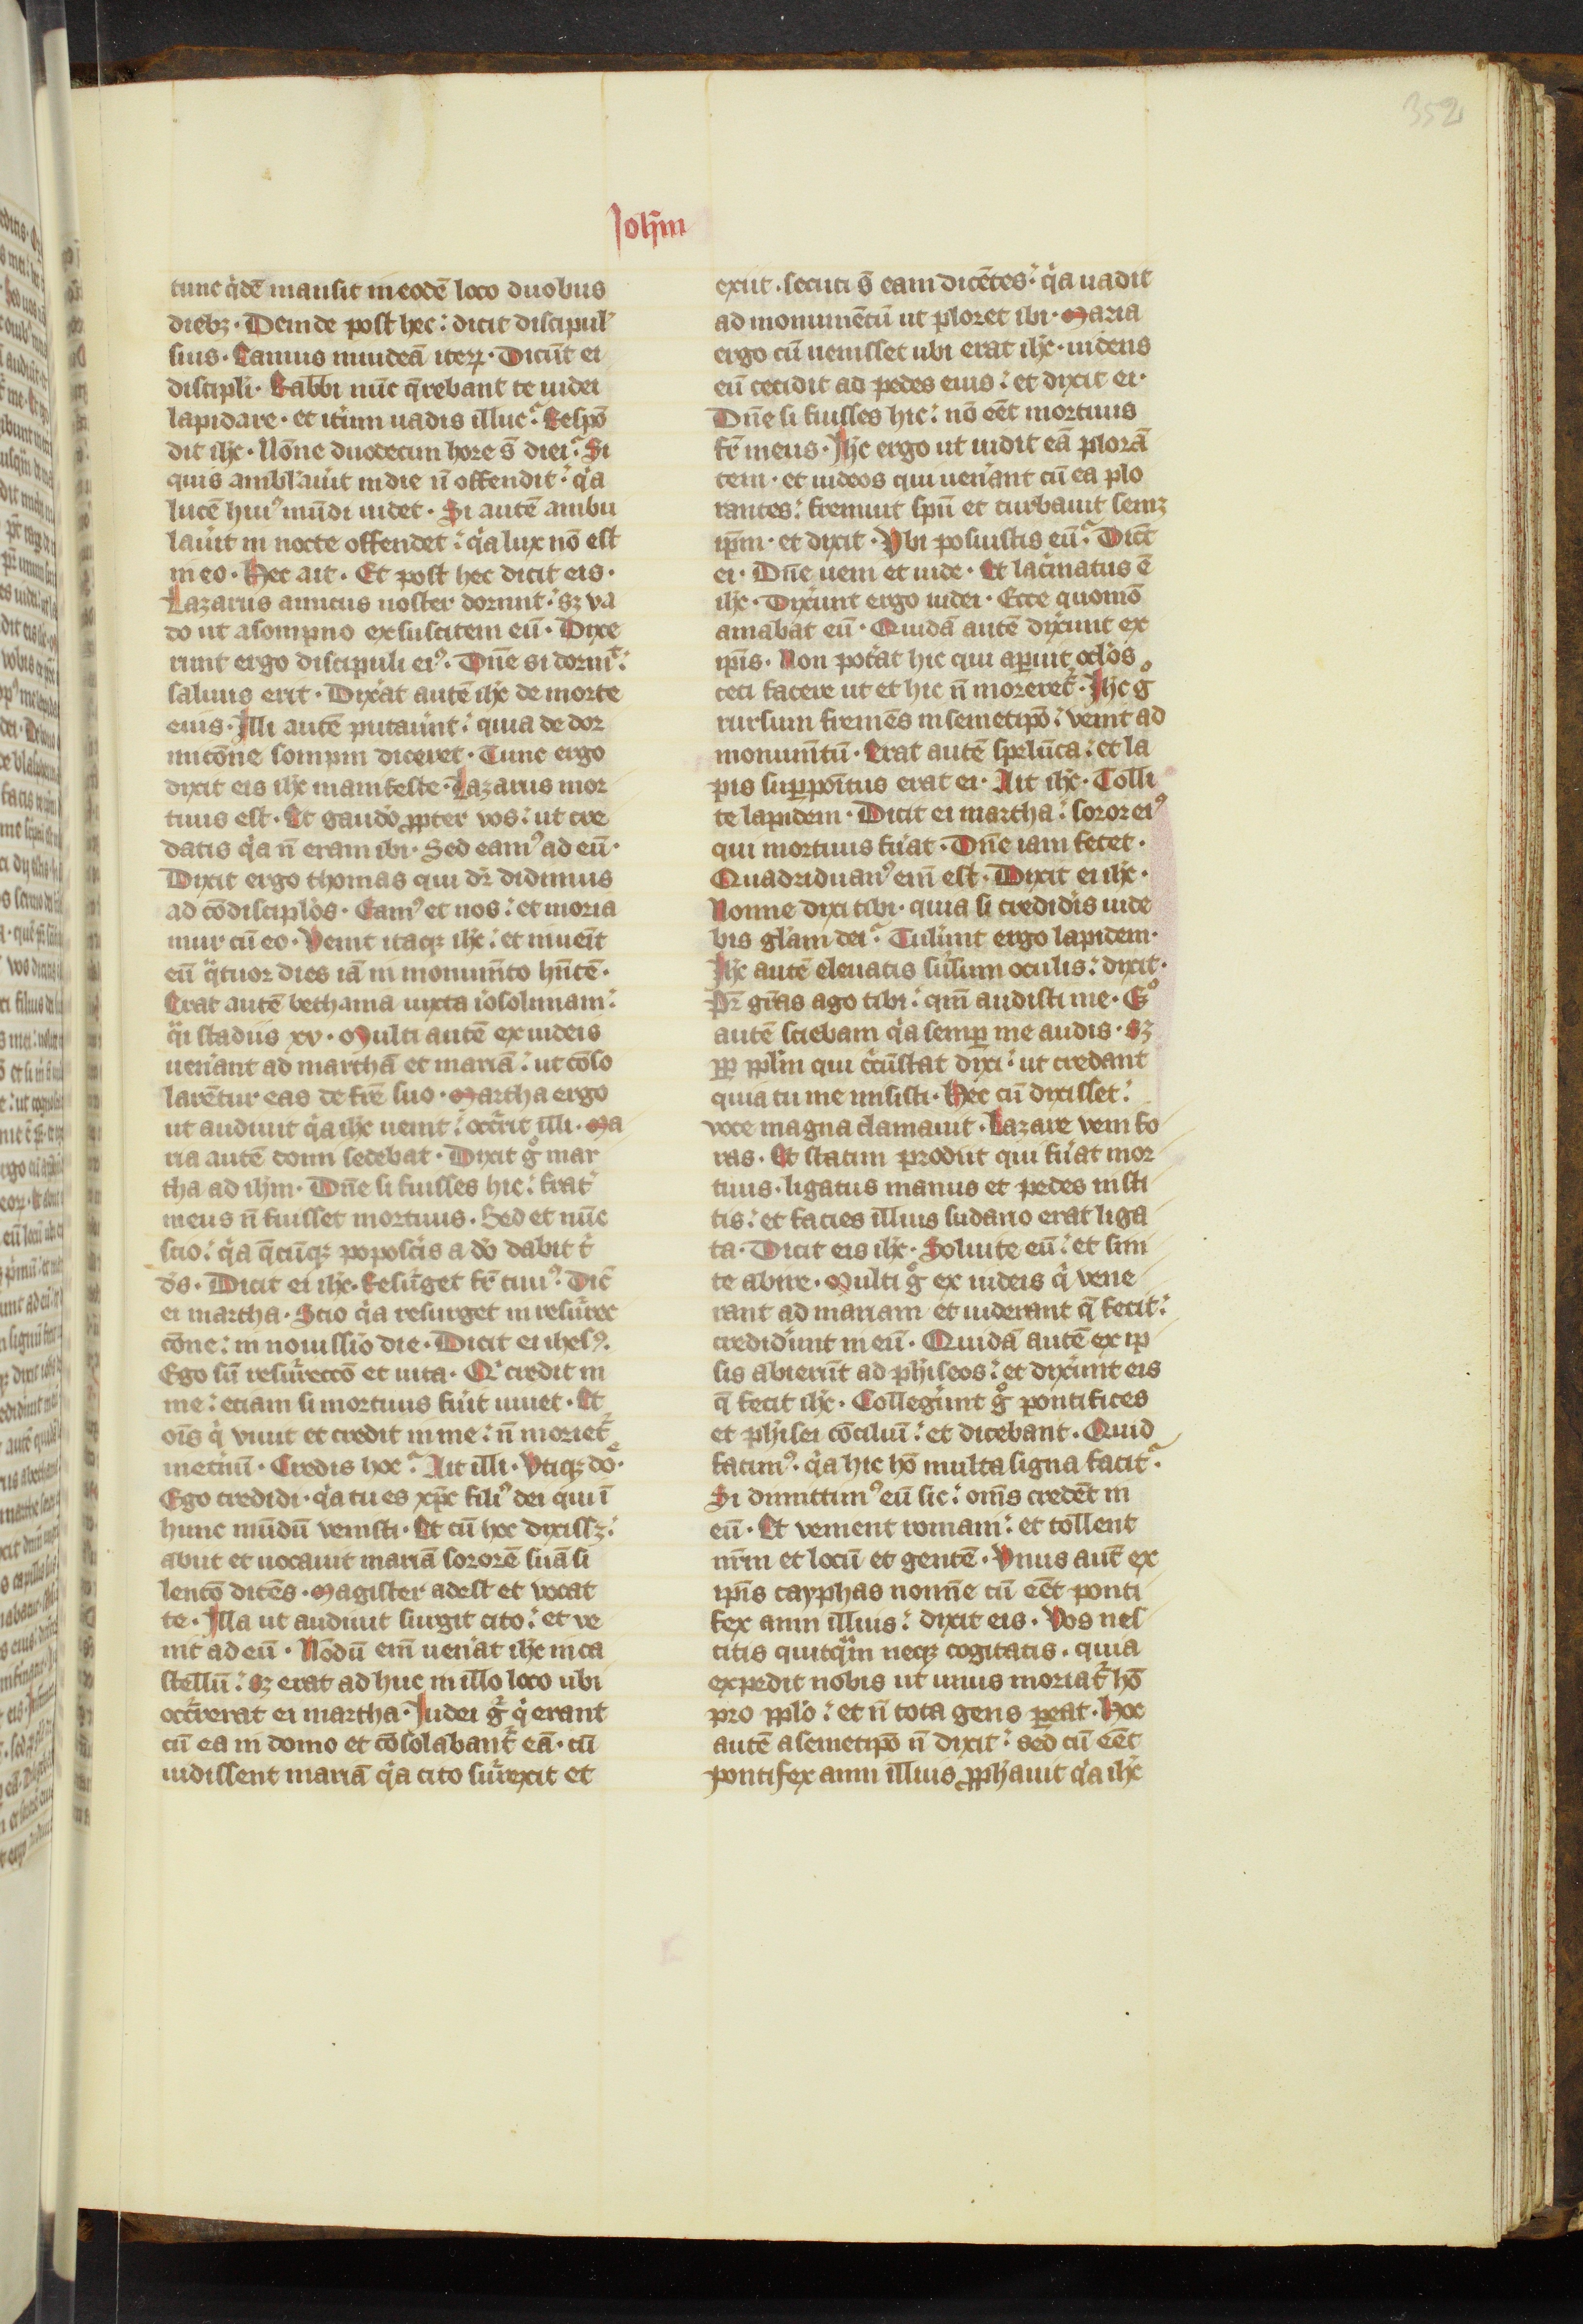 352
Ioh̄m
tunc q̇dē mansit in eodē loco duobus
diebꝫ · Deinde post hec : dicit discipul'
suis · Eamus in iudeā iteꝝ · Dicūt ei
discipli · Rabbi nūc q̄rebant te iudei
lapidare · et itim uadis illuc? Respō
dit ihc̄ · Nōne duodecim hore s̄ diei? Si
quis amblauit in die n̄ offendit : q̇a
lucē huiꝰ mūdi uidet · Si autē ambu
lauit in nocte offendet : q̇a lux nō est
in eo · Hec ait · Et post hec dicit eis ·
Lazarus amicus noster dormit : sꝫ va
do ut a sompno ex suscitem eū · Dixe
runt ergo discipuli eiꝰ · Dn̄e si dormit :
saluus erit · Dixat autē ihc̄ de morte
eius · Illi autē putauit : quia de dor
mitōne sompni diceret · Tunc ergo
dixit eis ihc̄ manifeste · Lazarus mor
tuus est · Et gaudo ꝓpter vos : ut cre
datis q̇a n̄ eram ibi · Sed eamꝰ ad eū ·
Dixit ergo thomas qui dr̄ didimus
ad cōdisciplos · Eamꝰ et nos : et moria
mur cū eo · Venit itaqꝫ ihc̄ : et inueit
eū q̈tuor dies iā in monumto hn̄tē ·
Erat autē bethania iuxta iosolimam :
q̈i stadiis xv · Multi autē ex iudeis
uenant ad marthā et mariā : ut cōso
larētur eas de fr̄e suo · Martha ergo
ut audiuit q̇a ihc̄ uenit : occrit illi · Ma
ria autē domi sedebat · Dixit g̊ mar
tha ad ihm̄ · Dn̄e si fuisses hic : frat'
meus n̄ fuisset mortuus · Sed et nūc
scio : q̇a q̄cūqꝫ poposcis a dō dabit t'
ds̄ · Dicit ei ihc̄ · Resurget fr̄ tuuꝰ · Dic̄
ei martha · Scio q̇a resurget in resurrec
cōne : in nouissīo die · Dicit ei ihesꝰ ·
Ego sū resurreccō et uita · Q' credit in
me : etiam si mortuus fuit uiuet · Et
oīs q̇ viuit et credit in me : n̄ moriet'
in etnū · Credis hoc? Ait illi · Vtiqꝫ dō ·
Ego credidi · q̇a tu es xp̄c filiꝰ dei qui ī
hunc mūdū venisti · Et cū hec dixissꝫ :
abiit et uocauit mariā sororē suā si
lentō dicēs · Magister adest et vocat
te · Illa ut audiuit surgit cito : et ve
nit ad eū · Nōdū eīm uenat ihc̄ in ca
stellū : sꝫ erat ad huc in illo loco ubi
occrerat ei martha · Iudei g̊ q̇ erant
cū ea in domo et cōsolabant' eā · cū
uidissent mariā q̇a cito surrexit et
exiit · secuti s̄ eam dicētes : q̇a uadit
ad monumētū ut ploret ibi · Maria
ergo cū uenisset ubi erat ihc̄ · uidens
eū cecidit ad pedes eius : et dixit ei ·
Dn̄e si fuisses hic : nō eēt mortuus
fr̄ meus · Ihc̄ ergo ut uidit eā plorā
tem · et iudeos qui uenant cū ea plo
rantes : fremuit spū et turbauit semꝫ
ipm̄ · et dixit · Vbi posuistis eū? Dicūt
ei · Dn̄e ueni et uide · Et lacimatus ē
ihc̄ · Dixunt ergo iudei · Ecce quomō
amabat eū · Quidā autē dixunt ex
ipis · Non potat hic qui aperuit oclos
ceci facere ut et hic n̄ moreret' · Ihc̄ g̊
rursum fremēs in semetipō : venit ad
monumtū · Erat autē spelūca : et la
pis suꝑpoitus erat ei · Ait ihc̄ · Tolli
te lapidem · Dicit ei martha : soror eiꝰ
qui mortuus fuat · Dn̄e iam fetet ·
Quadriduanꝰ eīm est · Dixit ei ihc̄ ·
Nonne dixi tibi · quia si credidis uide
bis glām dei? Tulunt ergo lapidem ·
Ihc̄ autē eleuatis sursum oculis : dixit ·
Pr̄ gr̄as ago tibi : qm̄ audisti me · Eº
autē sciebam q̇a semꝑ me audis · Sꝫ
ꝓꝑ pplm̄ qui circūstat dixi : ut credant
quia tu me misisti · Hec cū dixisset :
voce magna clamauit · Lazare veni fo
ras · Et statim prodiit qui fuat mor
tuus · ligatus manus et pedes insti
tis : et facies illius sudario erat liga
ta · Dicit eis ihc̄ · Soluite eū : et sini
te abire · Multi g̊ ex iudeis q̇ vene
rant ad mariam et uiderant q̄ fecit :
credidunt in eū · Quidā autē ex ip
sis abierūt ad phiseos : et dixunt eis
q̄ fecit ihc̄ · Collegunt g̊ pontifices
et phisei cōciliū : et dicebant · Quid
facimꝰ · q̇a hic hō multa signa facit?
Si dimittimꝰ eū sic : om̄s credēt in
eū · Et venient romani : et tollent
nrm̄ et locū et gentē · Vnus aut̄ ex
ipis cayphas nomīe cū eēt ponti
fex anni illius : dixit eis · Vos nes
citis quitq̈m neqꝫ cogitatis · quia
expedit nobis ut unus moriat' hō
pro pplo : et n̄ tota gens pereat · Hoc
autē a semetipō n̄ dixit : sed cū eēt
pontifex anni illius ꝓphauit q̇a ihc̄